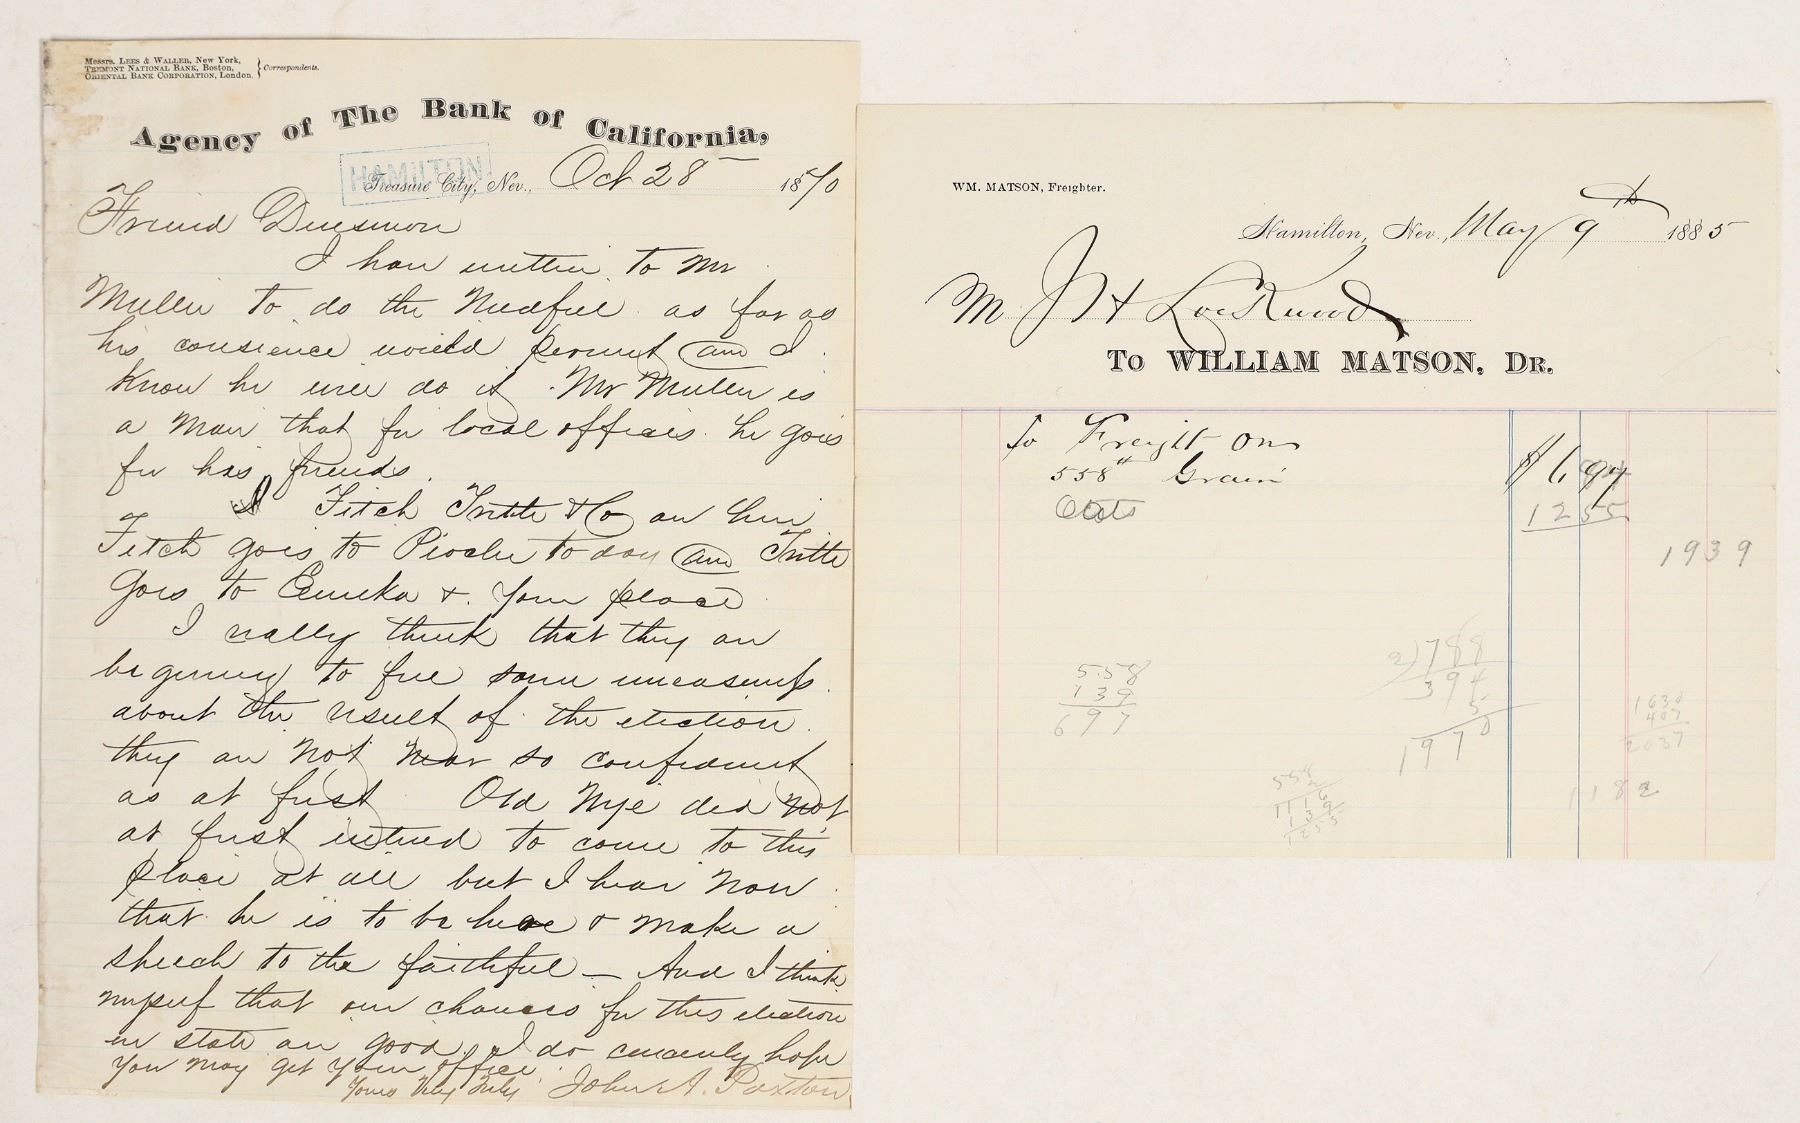 Messrs. LEES & WALLER, New York,
TREMONT NATIONAL BANK, Boston,
ORIENTAL BANK CORPORATION, London.
Correspondents.
Agency of The Bank of California,
HAMILTON
Treasure City, Nev., Oct 28 1870
Friend
I have written to Mr
Mullen to do the Needful as far as
his consience would permit and I
Know he will do it . Mr Mullen is
a Man that for local offices he goes
for his friends.
Fitch Tritle & Co are here
Fitch goes to Pioche to day and Tritle
Goes to Eureka & Your place
I really think that they are
begining to feel some uneasiness
about the result of the election.
they are not near so confident
as at first Old Nye did not
at first intend to come to this
place at all but I hear now
that he is to be here & make a
speech to the faithful — And I think
myself that our chances for this election
in state are good, I do cincerely hope
You may get your office.
Yours Very Truly John A. Paxton
WM. MATSON, Freighter.
Hamilton, Nev., May 9th 1885
M J H Lockwood
To WILLIAM MATSON, DR.
To Freight on
558# Grain $6,97
Oats 1255
1939
2)788
394
5
1970
558
139
697
1630
407
2037
558
2
1116
139
1255
1182